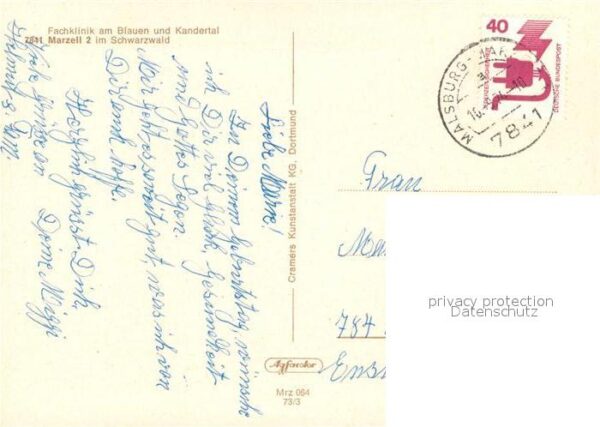 Fachklinik am Blauen und Kandertal
7841 Marzell 2 im Schwarzwald
Liebe Marie!
Zu Deinem Geburtstag wünsche
ich Dir viel Glück, Gesundheit
und Gottes Segen.
Mir geht es soweit gut, was ich von
Dir auch hoffe.
Herzlich grüsst Dich,
Deine
Viele Grüße an
Helmut u.
Cramers Kunstanstalt KG, Dortmund
Mrz 064
73/3
40
DEUTSCHE BUNDESPOST
MALSBURG-MAR
7841
Frau
784
privacy protection
Datenschutz